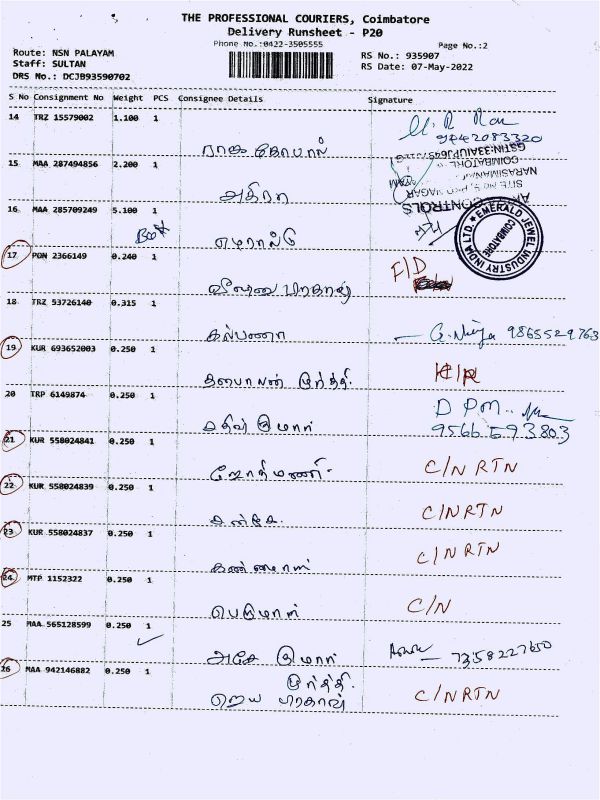 THE PROFESSIONAL COURIERS, Coimbatore
Delivery Runsheet - P20
Phone No.:0422-3505555
Page No.:2
Route: NSN PALAYAM
RS No.: 935907
Staff: SULTAN
RS Date: 07-May-2022
DRS No.: DCJB93590702
S No Consignment No Weight PCS Consignee Details Signature
14 TRZ 15579002 1.100 1
9442083320
ராஜ கோபால்
15 MAA 287494856 2.200 1
GSTIN:33AIUPJ6
COIMBATORE
NARASIMANAI
NAGAR
CONTROLS
16 MAA 285709249 5.100 1
Box
எமரால்டு
EMERALD JEWEL INDUSTRY INDIA LTD.
COIMBATORE
17 PON 2366149 0.240 1
F/D
18 TRZ 53726140 0.315 1
கல்பணா
9865529763
19 KUR 693652003 0.250 1
மூர்த்தி
20 TRP 6149874 0.250 1
DPM
கதிர் குமார்
9566593803
21 KUR 558024841 0.250 1
ஜோதிமணி
C/N RTN
22 KUR 558024839 0.250 1
C/N RTN
23 KUR 558024837 0.250 1
C/N RTN
24 MTP 1152322 0.250 1
பெருமாள்
C/N
25 MAA 565128599 0.250 1
குமார்
7358227650
26 MAA 942146882 0.250 1
மூர்த்தி
ஜெய பிரகாஷ்
C/N RTN